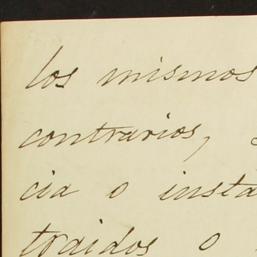 los mismos
contrarios,
cia o insta
traidos o